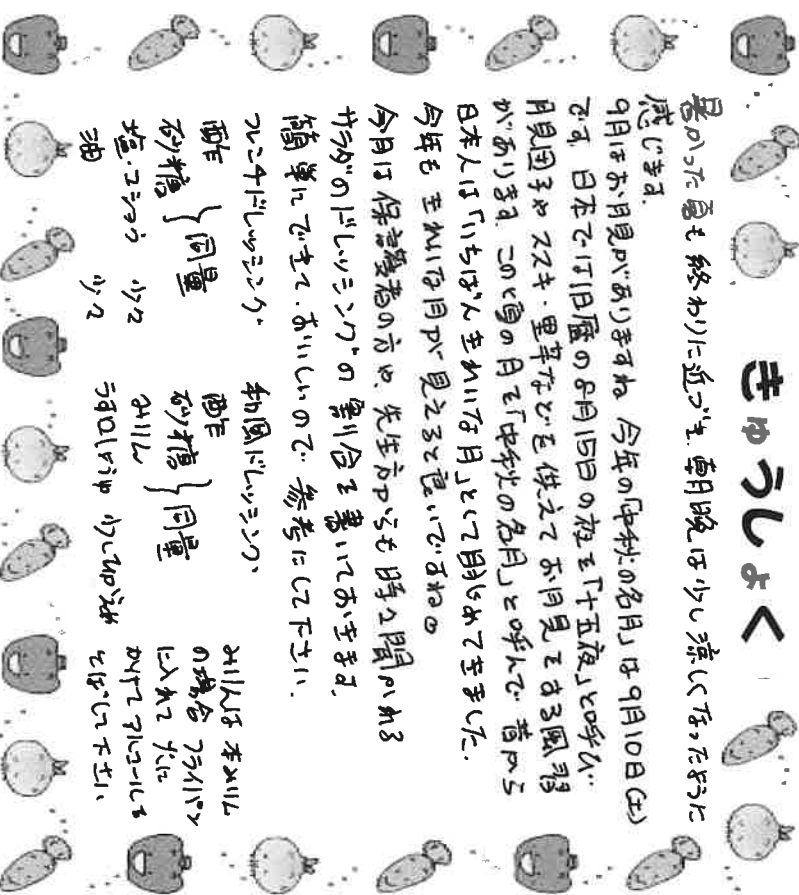 きゅうしょく
暑かった夏も終わりに近づき、朝晩は少し涼しくなったように
感じます。
9月はお月見がありますね。今年の「中秋の名月」は9月10日(土)
です。日本では旧暦の8月15日の夜を「十五夜」と呼び
月見団子やススキ・里芋などを供えてお月見をする風習
があります。この頃の月を「中秋の名月」と呼んで昔から
日本人は「いちばんきれいな月」として眺めてきました。
今年もきれいな月が見えると良いですね。
今月は保護者の方や、先生方からも時々聞かれる
サラダのドレッシングの割合を書いておきます。
簡単にできて、おいしいので参考にして下さい。
フレンチドレッシング
酢
砂糖 } 同量
塩・コショウ 少々
油 少々
和風ドレッシング
酢
砂糖 } 同量
みりん
うす口しょうゆ 少しひかえめ
みりんは本みりん
の場合フライパン
に入れて火に
かけてアルコールを
とばして下さい